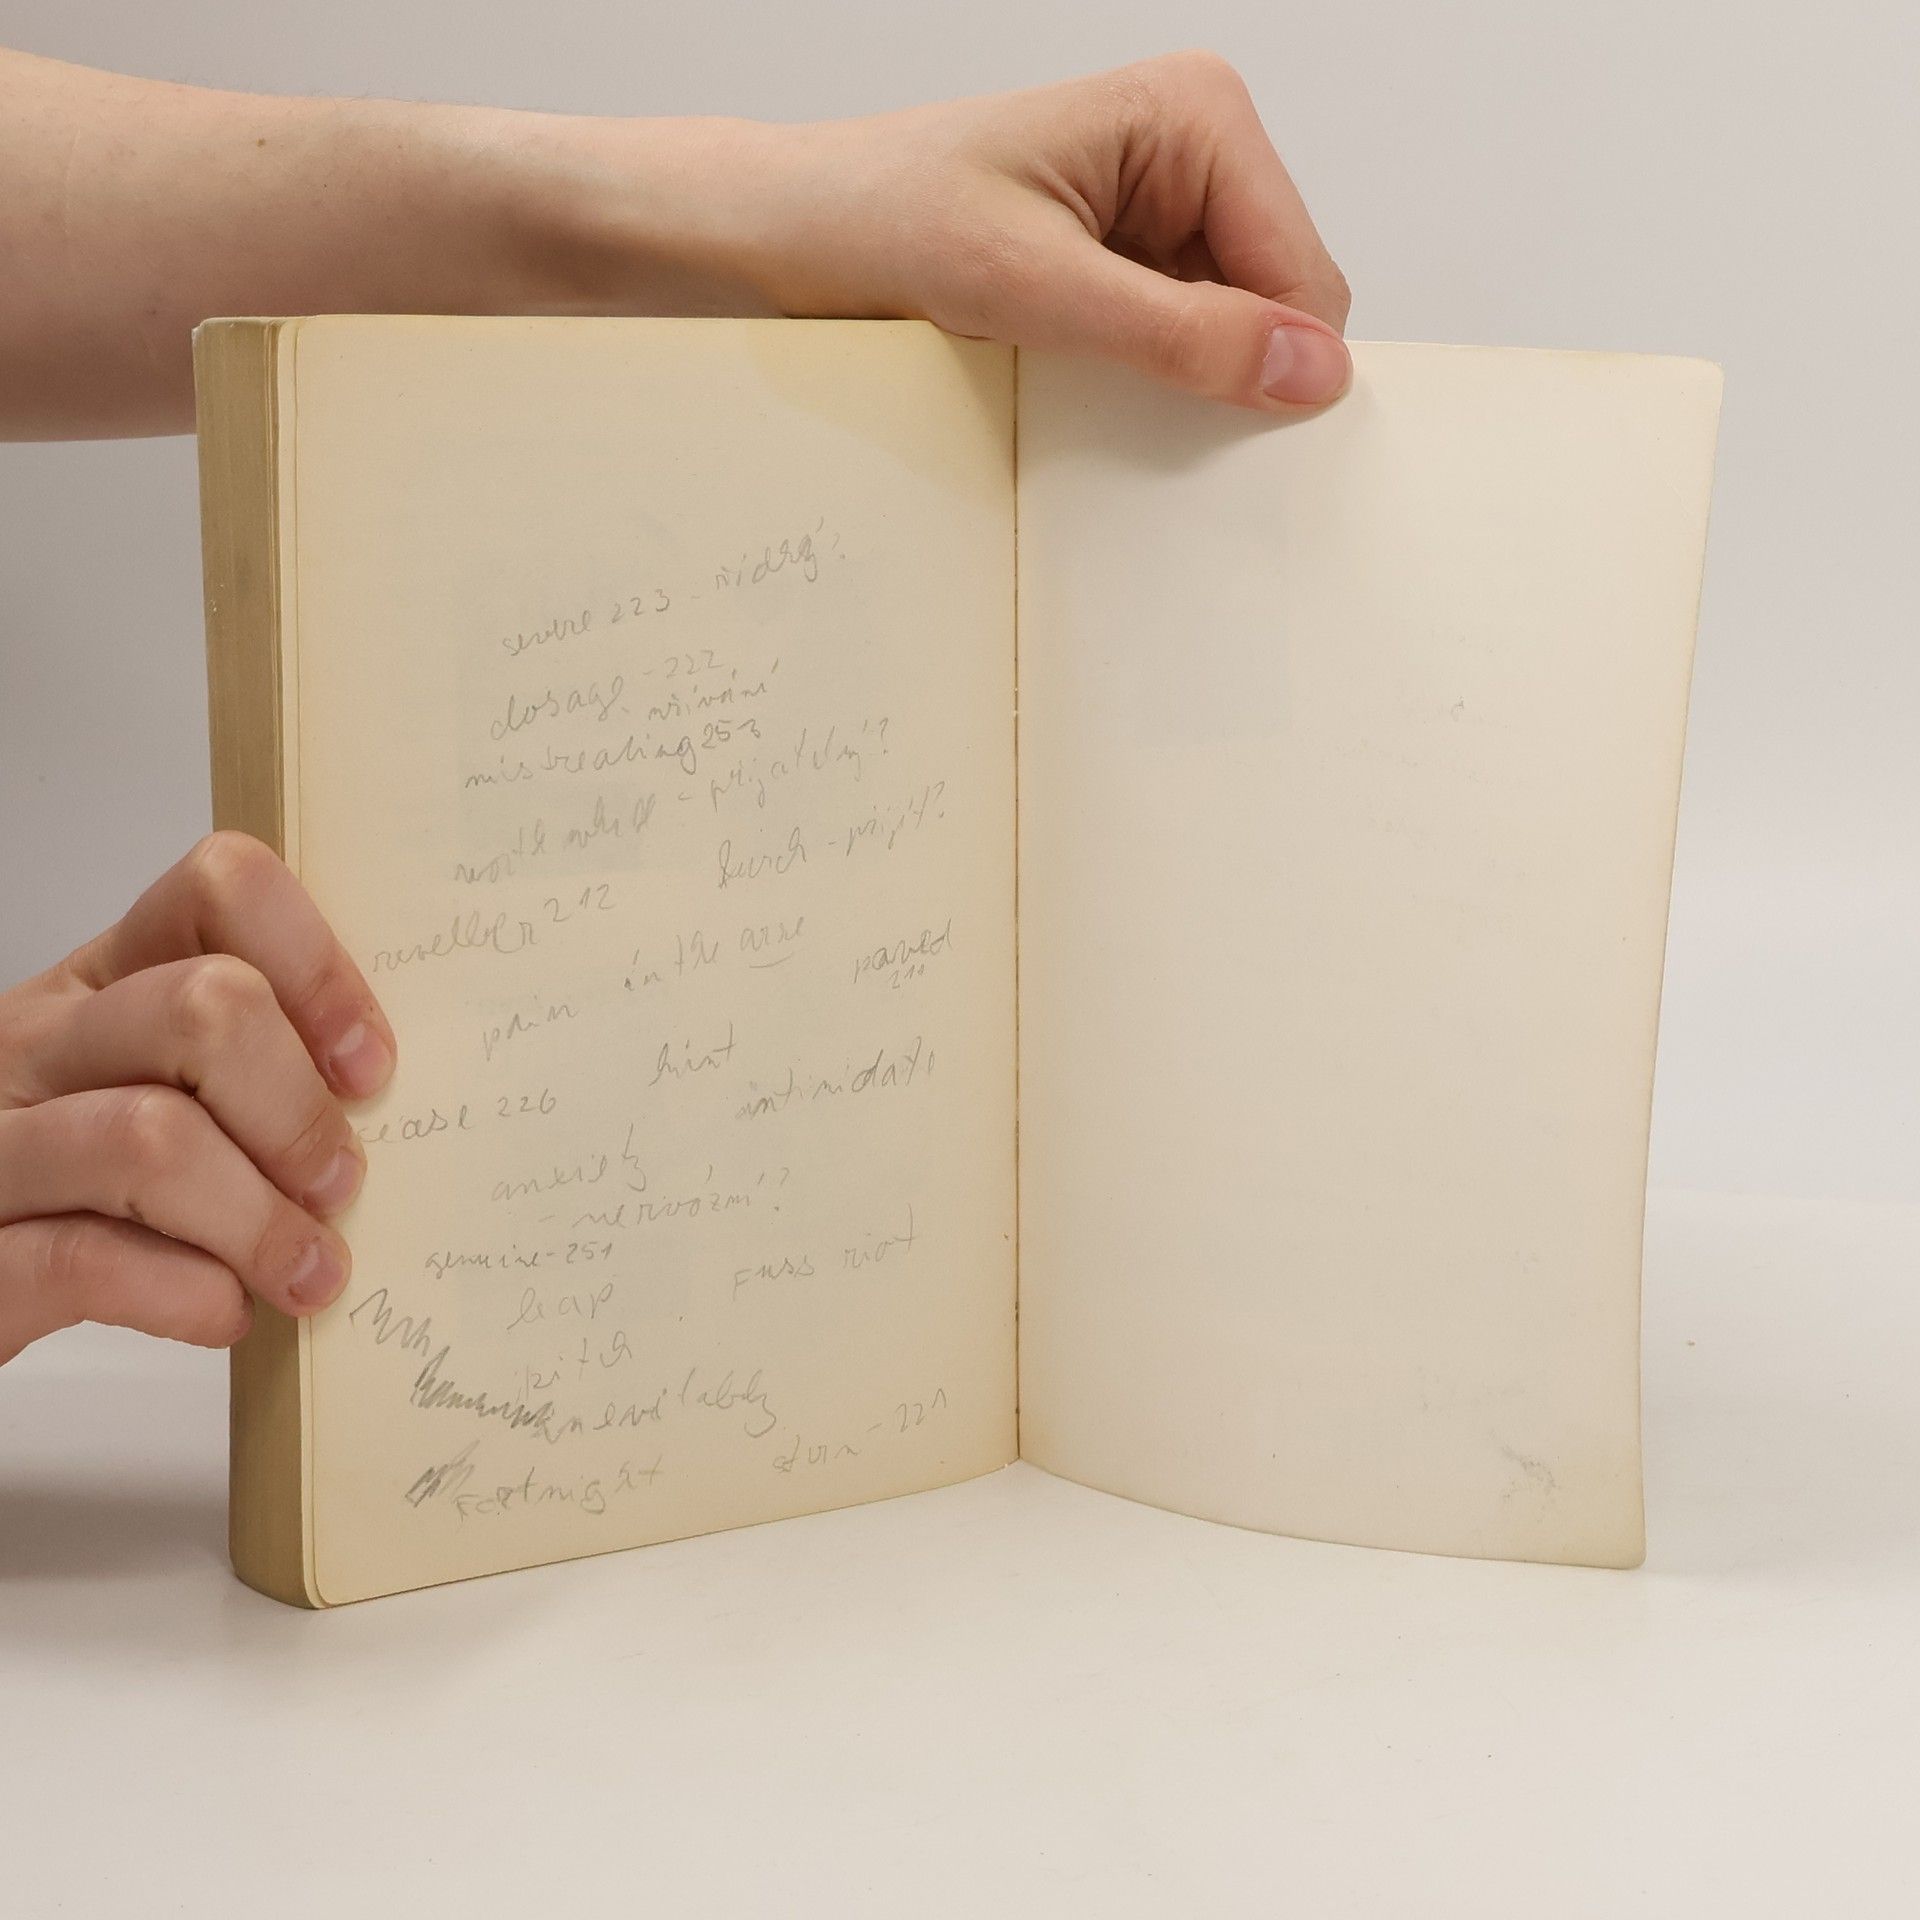 severe 223 - řídký?
dosage - 222
užívání
mistreating 253
worth while - přijatelný?
lurch - přijít?
reveller 212
pain in the arse
paved
211
hint
cease 226
intimidate
anxiety
- nervózní?
genuine - 251
Fuss riot
leap
pitch
inevitably
turn - 221
Fortnight